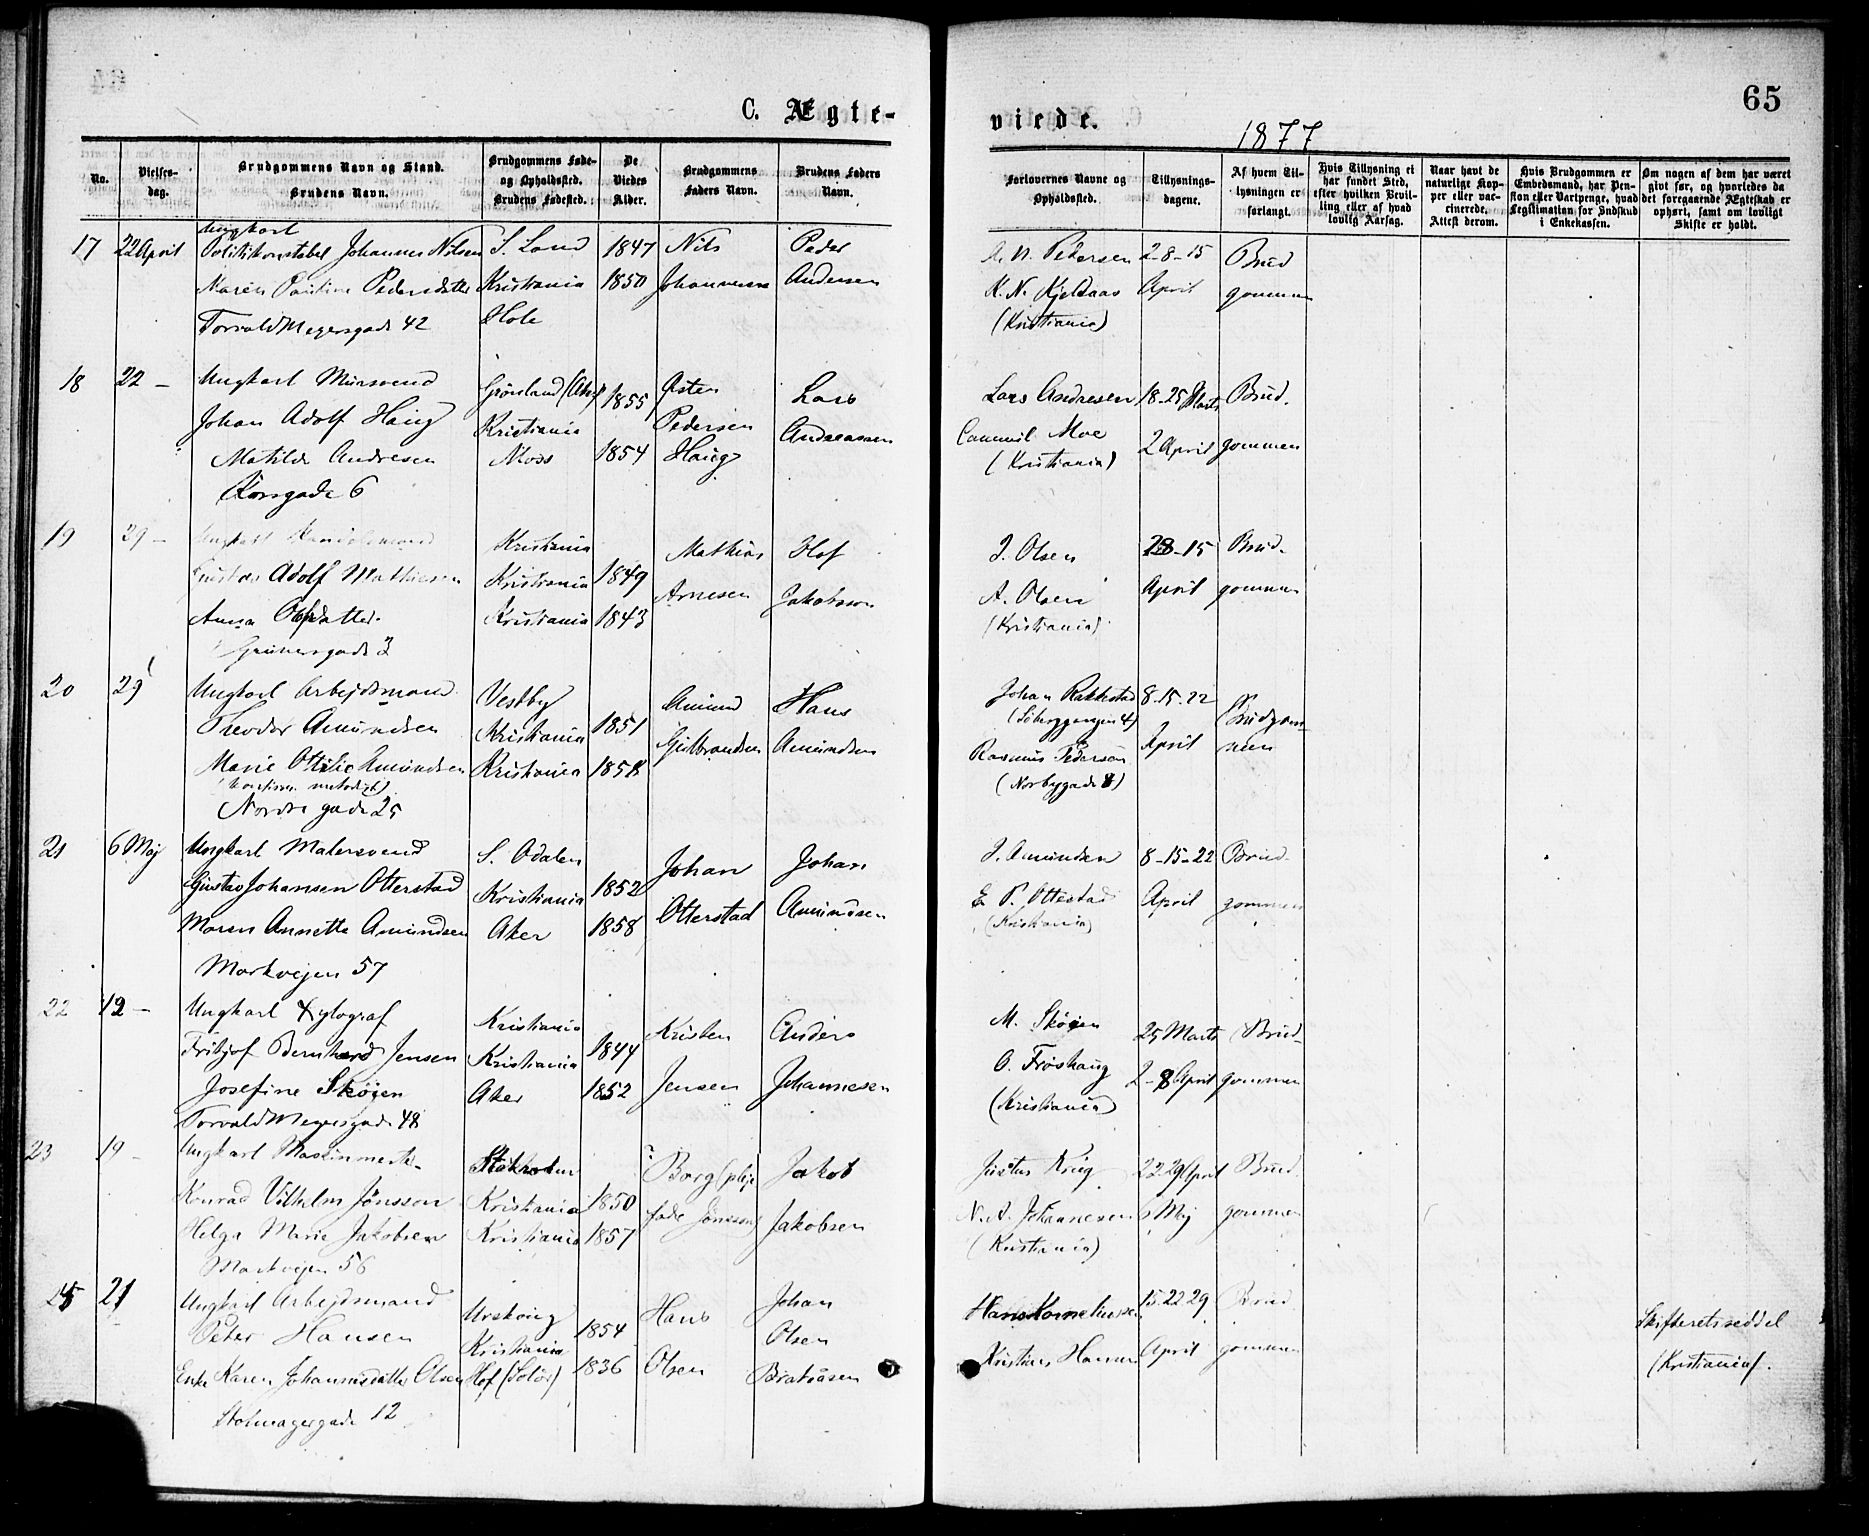 C. Ægte-
viede.
1877
65
No.
Vielses-
dag.
Brudgommens Navn og Stand.
Brudens Navn.
Brudgommens Føde-
og Opholdssted.
Brudens Fødested.
De
Viedes
Alder.
Brudgommens
Faders Navn.
Brudens Faders
Navn.
Forlovernes Navne og
Opholdssted.
Tillysnings-
dagene.
Af hvem Til-
lysningen er
forlangt.
Hvis Tillysning ei
har fundet Sted,
efter hvilken Bevil-
ling eller af hvad
lovlig Aarsag.
Naar havt de
naturlige Kop-
per eller vac-
cinerede.
Attest derom.
Hvis Brudgommen er
Embedsmand, har Pen-
sion eller Vartpenge, hvad
Legitimation for Indskud
i Enkekassen.
Om nogen af dem har været
gift før, og hvorledes da
det foregaaende Ægteskab er
ophørt, samt om lovligt
Skifte er holdt.
17 22 April Ungkarl
Politikonstabel Johannes Nilsen S. Land 1847 Nils Peder
Maren Pauline Pedersdatter Kristiania 1850 Johannesen Andersen
Torvald Meyersgade 42 Hole
A. N. Pedersen 2-8-15 Brud
K. N. Kjeldaas April gommen
(Kristiania)
18 22 – Ungkarl Mursvend Grønland (Aker) 1855 Østen Lars
Johan Adolf Haug Kristiania Pedersen Andreassen
Matilde Andresen Moss 1854 Haug
Korsgade 6
Lars Andresen 18-25 Marts Brud-
Moe 2 April gommen
(Kristiania)
19 29 – Ungkarl Handelsmand Kristiania Mathias Olof
Gustav Adolf Mathiesen Kristiania 1849 Arnesen Jakobsson
Anna Olofsdatter Kristiania 1843
Grünersgade 3
J. Olsen 28-15 Brud-
A. Olsen April gommen
(Kristiania)
20 29 Ungkarl Arbejdsmand Vestby Amund Hans
Theodor Amundsen Kristiania 1851 Gulbrandsen Amundsen
Marie Otilie Amundsen Kristiania 1858
Nordre gade 25
Johan Rakkestad 8-15-22 Brudgom-
April men
Rasmus Pedersen
(Norbygade 8)
21 6 Maj Ungkarl Malersvend S. Odalen Johan Johan
Gustav Johansen Otterstad Kristiania 1852 Otterstad Amundsen
Maren Annette Amundsen Aker 1858
Markvejen 57
J. Amundsen 8-15-22 Brud-
E. P. Ottestad April gommen
(Kristiania)
22 12 – Ungkarl Xylograf Kristiania Kristen Anders
Fritjof Bernhard Jensen Kristiania 1844 Jensen Johannesen
Josefine Skøien Aker 1852
Torvald Meyersgade 48
M. Skøien 25 Marts Brud-
O. Frøshaug 2-8 April gommen
(Kristiania)
23 19 – Ungkarl Maskinmest- Stokholm Borg (pleje Jakob
Konrad Vilhelm Jönsson Kristiania 1850 fader Jönsson) Jakobsen
Helga Marie Jakobsen Kristiania 1857
Markvejen 56
Justus Krieg 22-29 April Brud-
N. A. Johannesen 6 Maj gommen
(Kristiania)
21 Ungkarl Arbejdsmand Urskoug Hans Johan
Peter Hansen Kristiania 1854 Olsen Olsen
Enke Karen Johannesdatter Olsen Hof (Solør) 1836 Bratåsen
Stolmagergade 12
Hans Korneliussen 15-22 29 Brud
Kristian Hansen April gommen
Skifteretsseddel
(Kristiania).